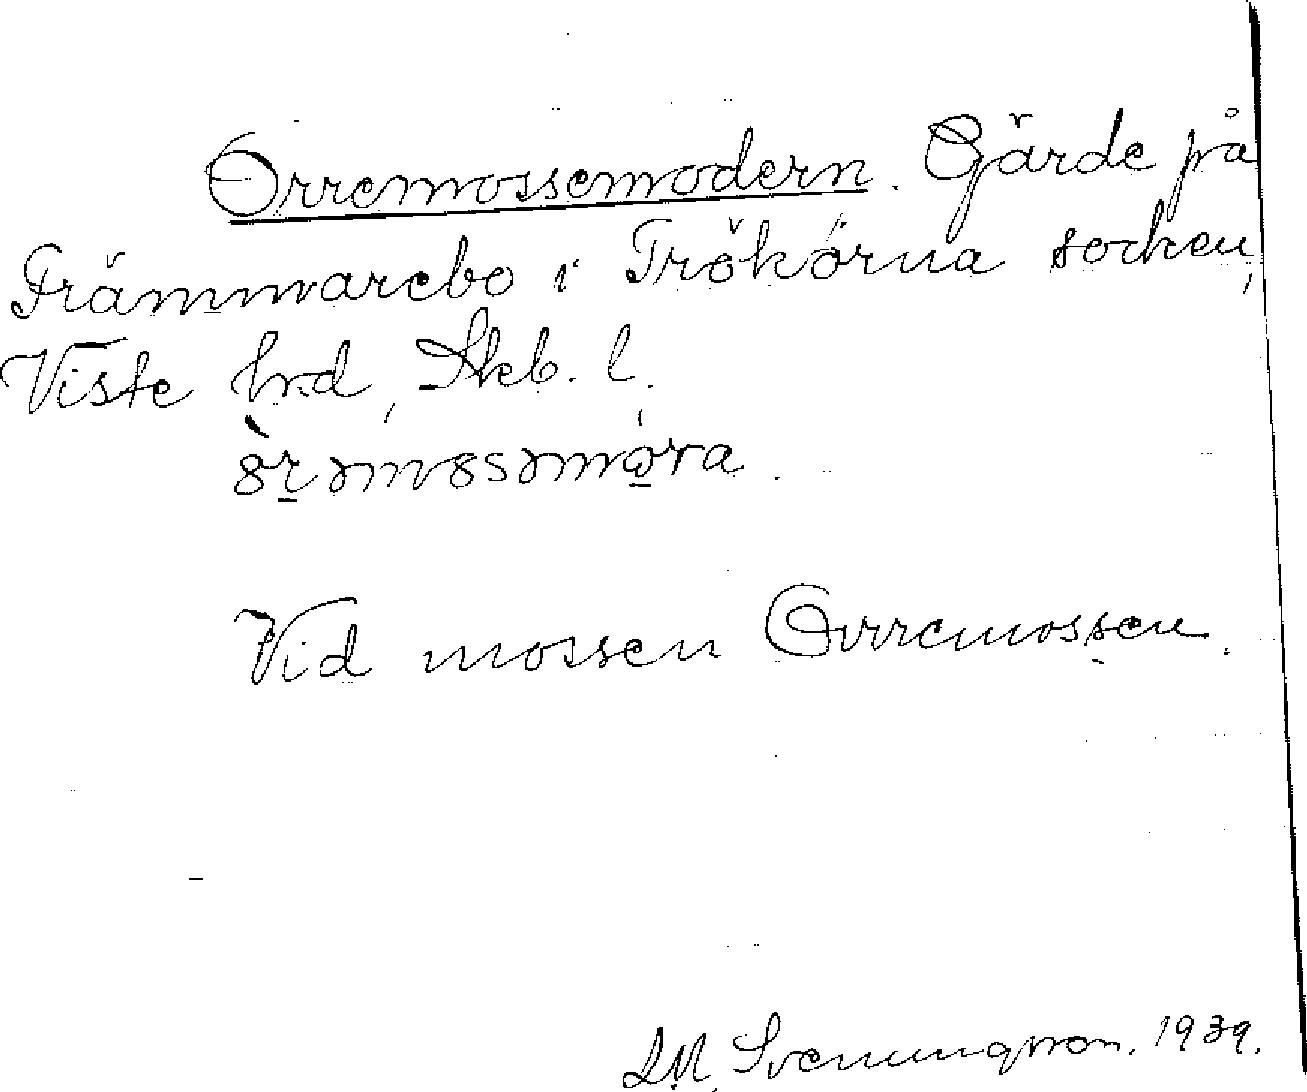 Orremossemodern. Gärde på
Främmarebo i Trökörna socken,
Viste hrd, Skb. l.
Vid mossen Orremossen.
Svenungsson. 1939.